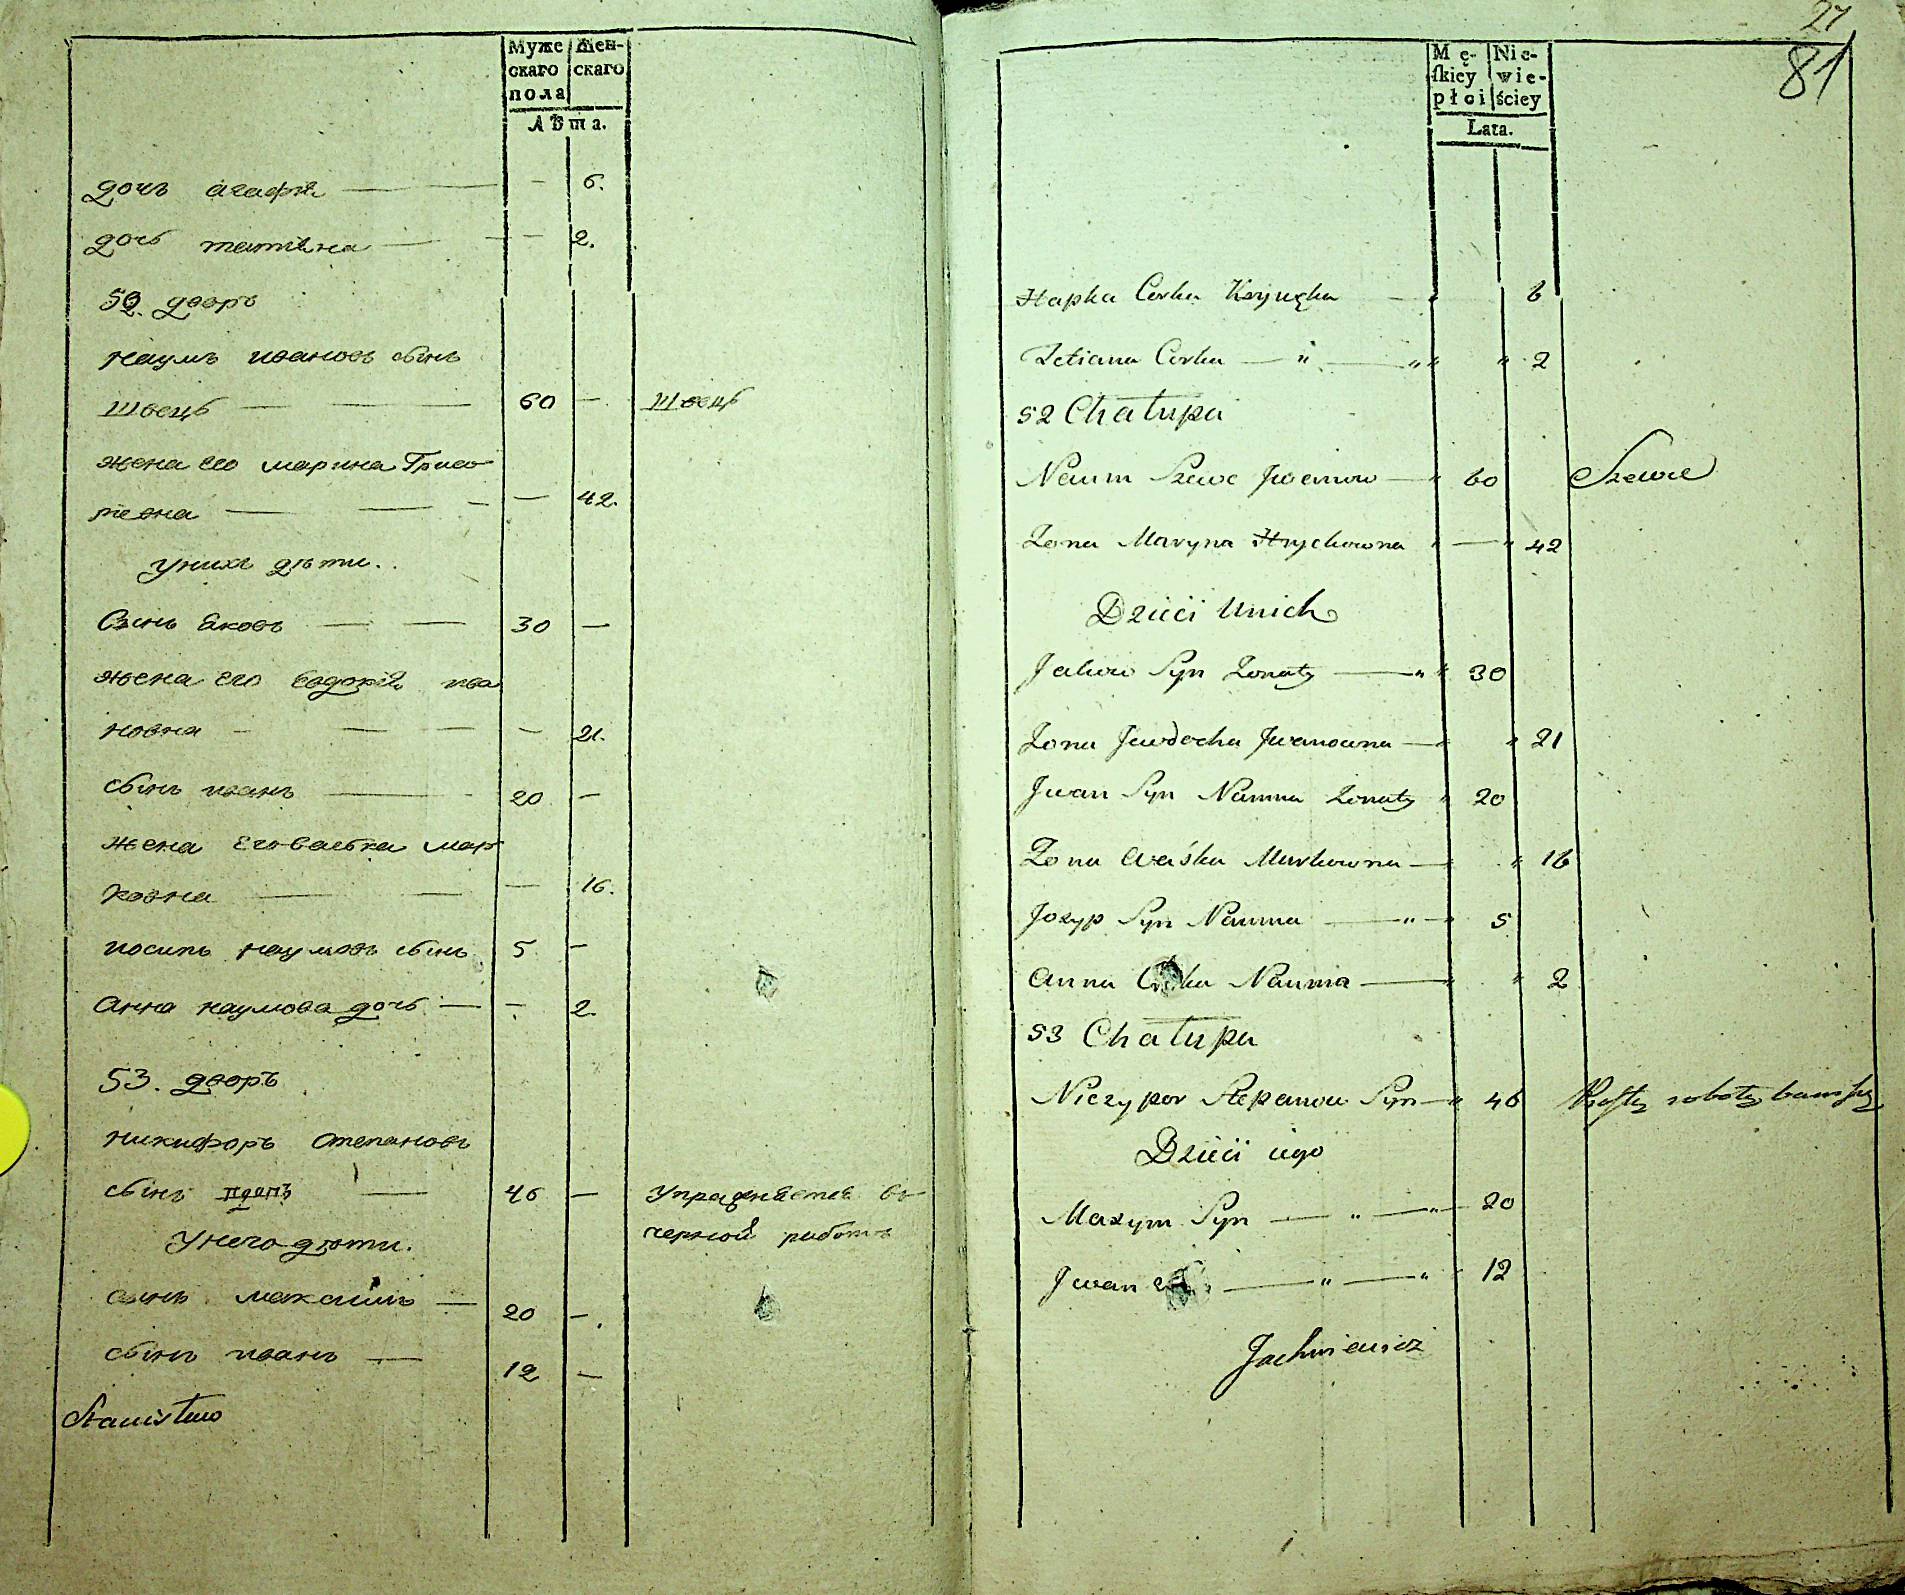 Муже Жен-
скаго скаго
пола
Лѣта.
дочь агафія — — — 6.
дочь татіяна — — — 2.
52. дворъ
наумъ ивановъ сынъ
швець — — 60 — швець
жена его марина Григо
ріевна — — — — 42.
У нихъ дѣти.
Сынъ яковъ — — 30 —
жена его евдокія ива
новна — — — — 21.
сынъ иванъ — 20 —
жена его васька мар
ковна — — — 16.
иосипъ наумовъ сынъ 5 —
Анна наумова дочь — — 2.
53. дворъ
никифоръ степановъ
сынъ — 46 — упражняется въ
черной работѣ
У него дѣти.
сынъ максимъ — 20 —
сынъ иванъ — 12 —
27
81
Mę- Nie-
skiey wie-
płci ściey
Lata.
Hapka Corka — 6
Tetiana Corka — " — " " " 2
52 Chałupa
Naum Szewc Jwanow — " 60 Szewc
Żona Maryna Hrychowna " — " 42
Dzieci Unich
Jakow Syn Żonaty — " " 30
Żona Jewdocha Jwanowna — " " 21
Jwan Syn Nauma Żonaty " 20
Żona Waśka Markowna — " 16
Jozyp Syn Nauma — " — 5
Anna Corka Nauma — " " 2
53 Chałupa
Niczypor Stepanow Syn — " 46 robotą
Dzieci iego
Maxym Syn — " — " — 20
Jwan — " — " 12